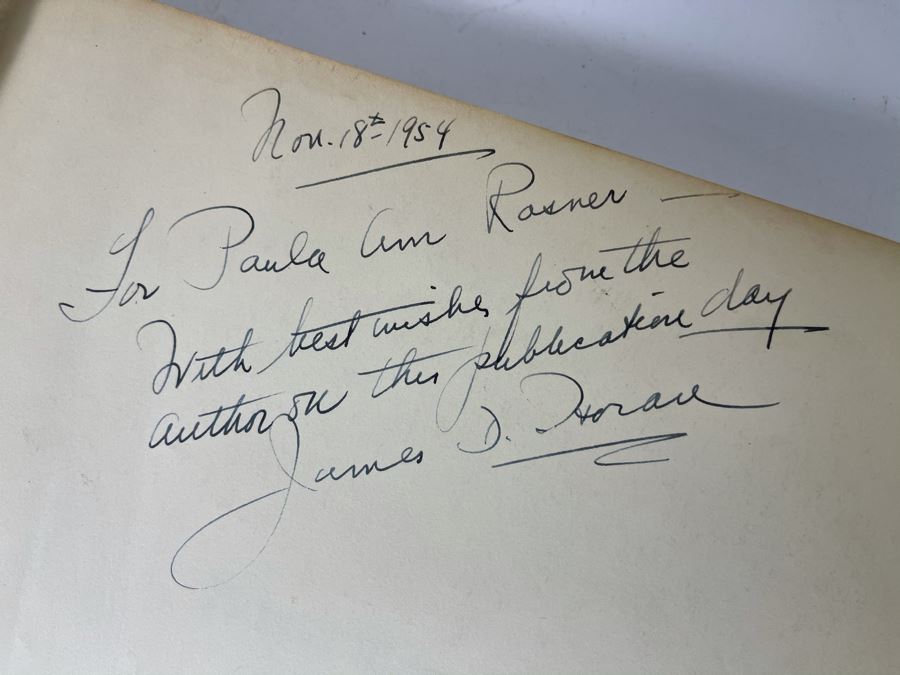 Nov. 18th 1954
For Paula Ann Rosner —
With best wishes from the
author on this publication day
James D. Horan